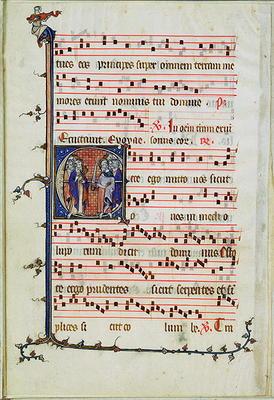 tues eos principes super omnem terram me
mores erunt nominis tui domine. ps.
R. In omnem terram exivi
Eructavit. Evovae. sonus eor. R.
cce ego mitto vos sicut
o ves in medi o
lupo rum dicit do mi nus Esto
te ergo prudentes si cut serpentes et si
plices si cut co lum be. V. Dum